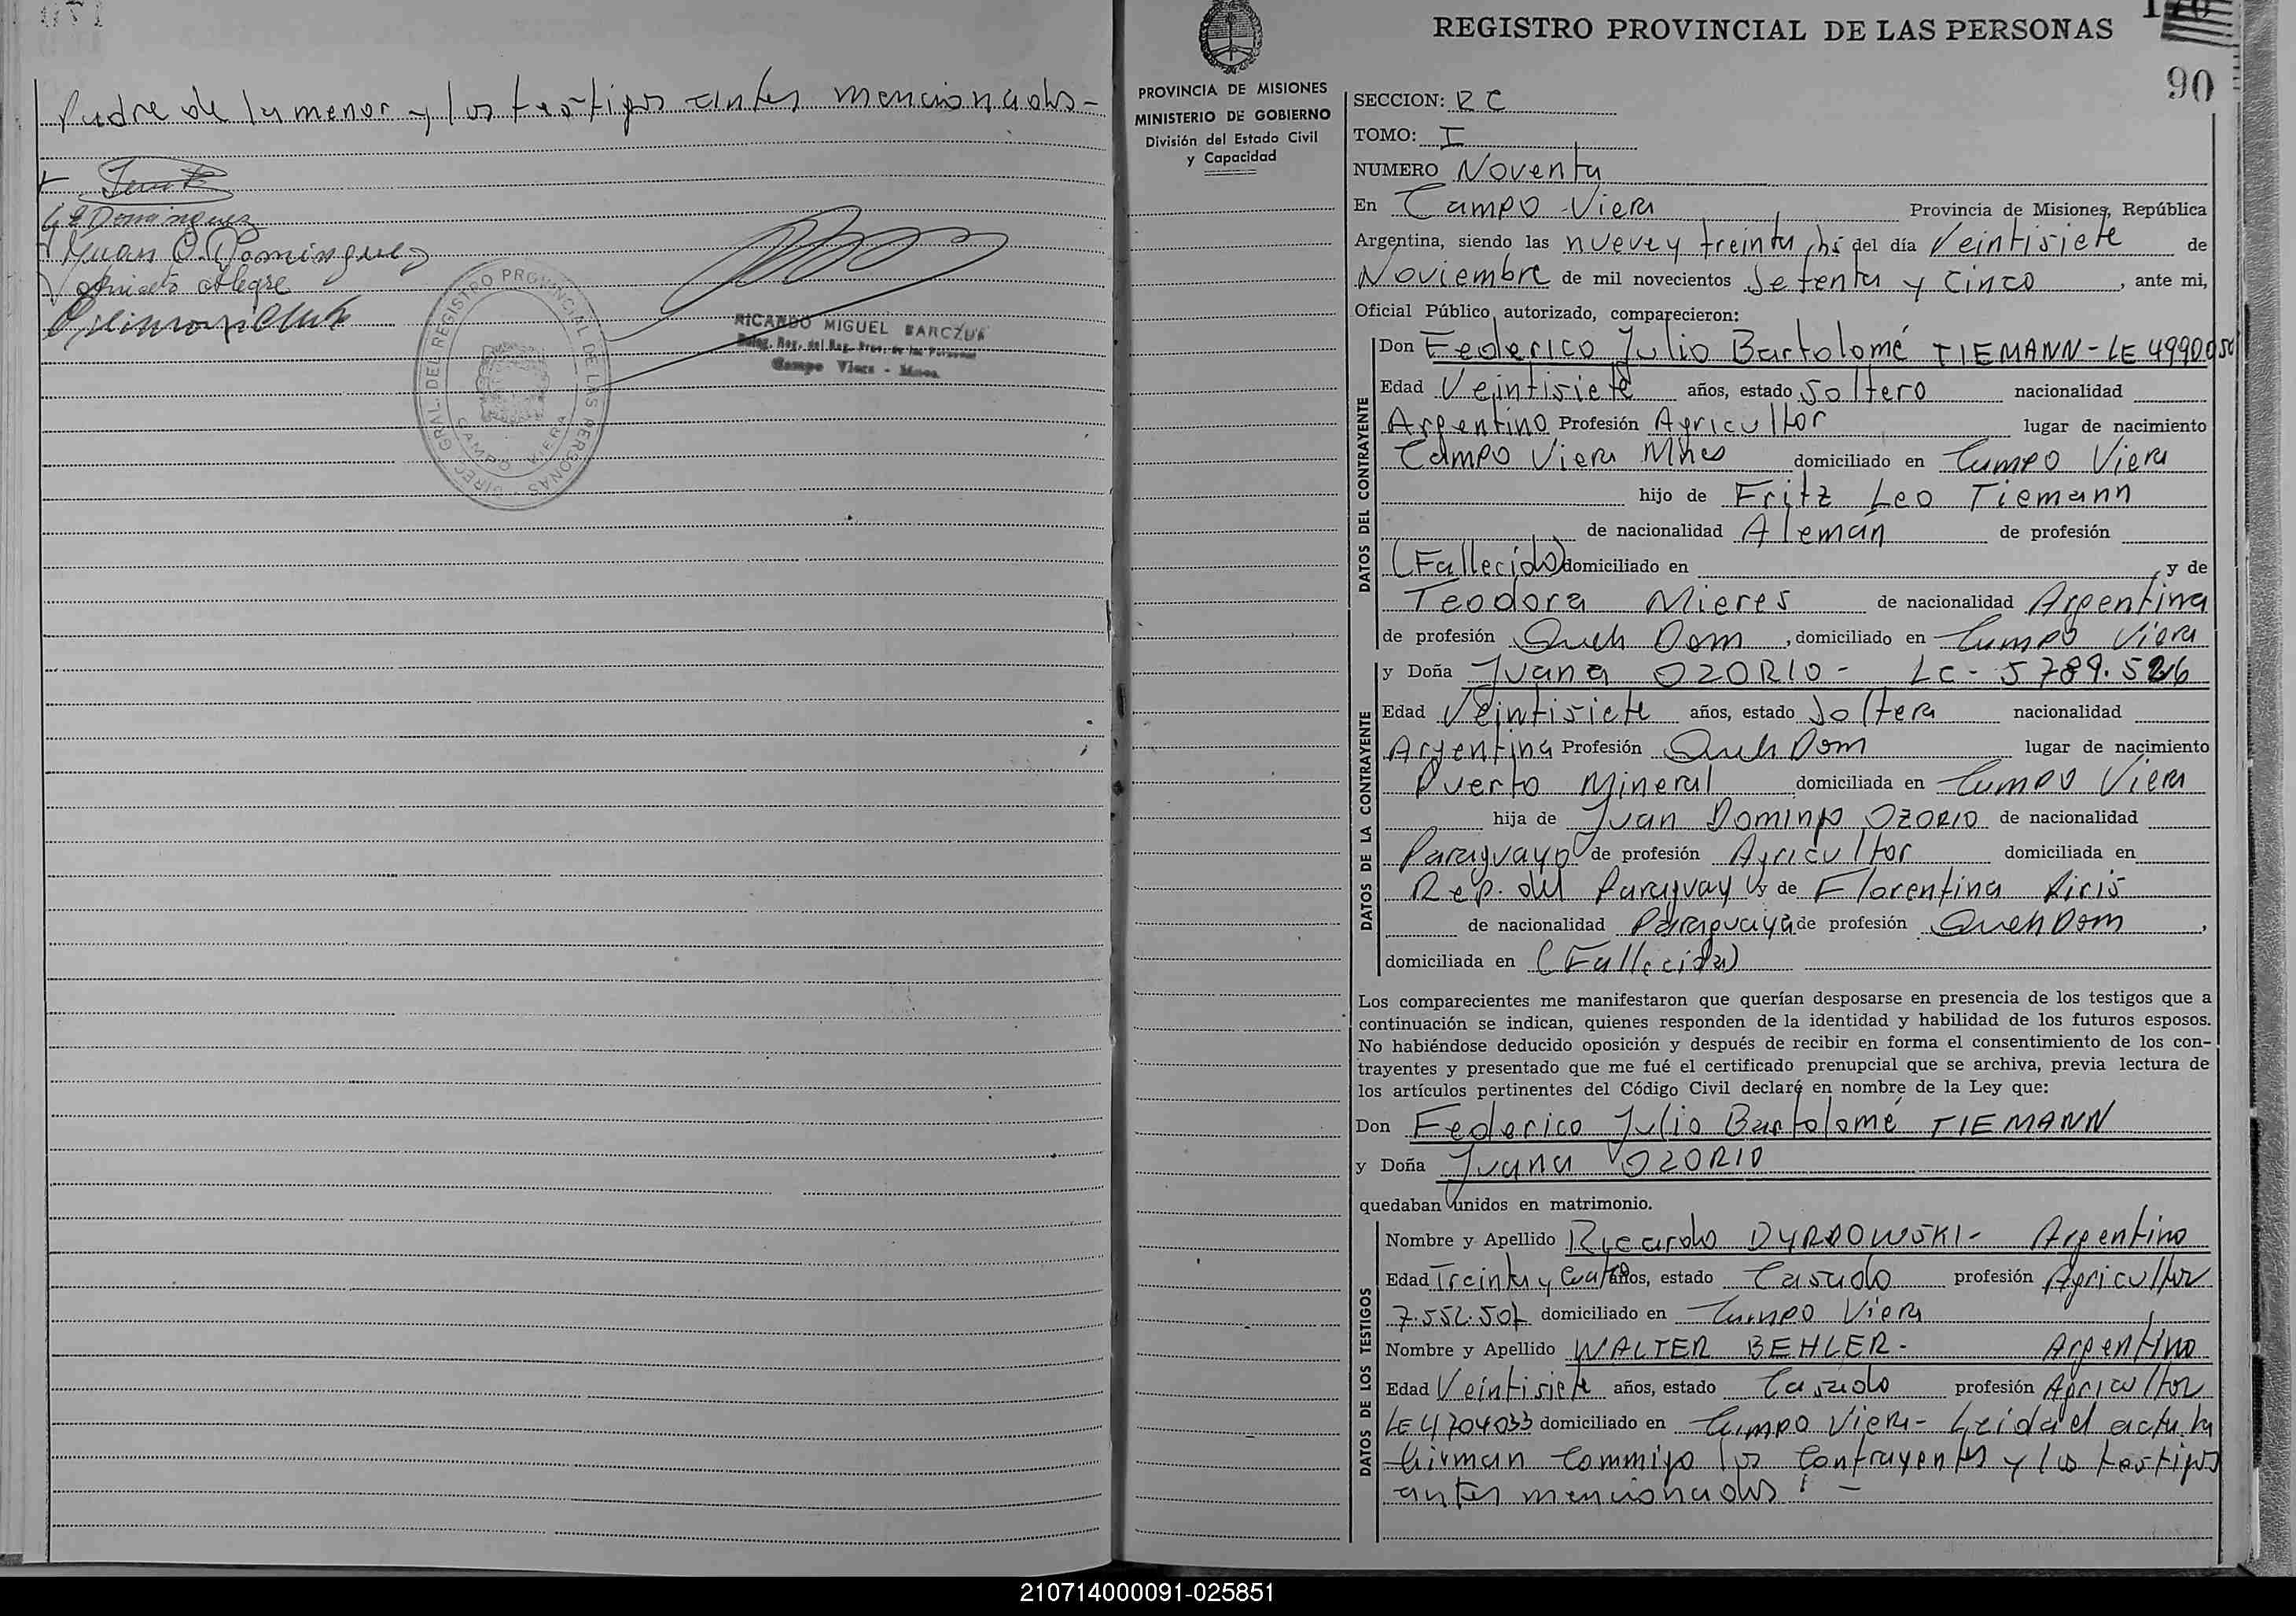 Padre de la menor y los testigos antes mencionados-
G E Dominguez
Juan C. Dominguez
Aniceto Alegre
DIREC. GRAL. DEL REGISTRO PROVINCIAL DE LAS PERSONAS
CAMPO VIERA
RICARDO MIGUEL BARCZUK
Deleg. Reg. del Reg. Prov. de las Personas
Campo Viera - Mnes.
REGISTRO PROVINCIAL DE LAS PERSONAS
90
PROVINCIA DE MISIONES
MINISTERIO DE GOBIERNO
División del Estado Civil
y Capacidad
SECCION: RC
TOMO: I
NUMERO Noventa
En Campo Viera Provincia de Misiones, República
Argentina, siendo las nueve y treinta hs del día Veintisiete de
Noviembre de mil novecientos Setenta y Cinco, ante mi,
Oficial Público autorizado, comparecieron:
DATOS DEL CONTRAYENTE
Don Federico Julio Bartolomé TIEMANN - LE 4990050
Edad Veintisiete años, estado Soltero nacionalidad
Argentino Profesión Agricultor lugar de nacimiento
Campo Viera Mnes domiciliado en Campo Viera
hijo de Fritz Leo Tiemann
de nacionalidad Alemán de profesión
(Fallecido) domiciliado en y de
Teodora Mieres de nacionalidad Argentina
de profesión Queh Dom, domiciliado en Campo Viera
DATOS DE LA CONTRAYENTE
y Doña Juana OZORIO - LC - 5789.526
Edad Veintisiete años, estado Soltera nacionalidad
Argentina Profesión Queh Dom lugar de nacimiento
Puerto Mineral domiciliada en Campo Viera
hija de Juan Domingo OZORIO de nacionalidad
Paraguayo de profesión Agricultor domiciliada en
Rep. del Paraguay y de Florentina
de nacionalidad Paraguaya de profesión Queh Dom,
domiciliada en (Fallecida)
Los comparecientes me manifestaron que querían desposarse en presencia de los testigos que a
continuación se indican, quienes responden de la identidad y habilidad de los futuros esposos.
No habiéndose deducido oposición y después de recibir en forma el consentimiento de los con-
trayentes y presentado que me fué el certificado prenupcial que se archiva, previa lectura de
los artículos pertinentes del Código Civil declaré en nombre de la Ley que:
Don Federico Julio Bartolomé TIEMANN
y Doña Juana OZORIO
quedaban unidos en matrimonio.
DATOS DE LOS TESTIGOS
Nombre y Apellido Ricardo DYRDOWSKI - Argentino
Edad Treinta y Cuatro años, estado Casado profesión Agricultor
7.552.501 domiciliado en Campo Viera
Nombre y Apellido WALTER BEHLER - Argentino
Edad Veintisiete años, estado Casado profesión Agricultor
LE 4704033 domiciliado en Campo Viera - Leida el acta la
firman conmigo los Contrayentes y los testigos
antes mencionados. -
210714000091-025851